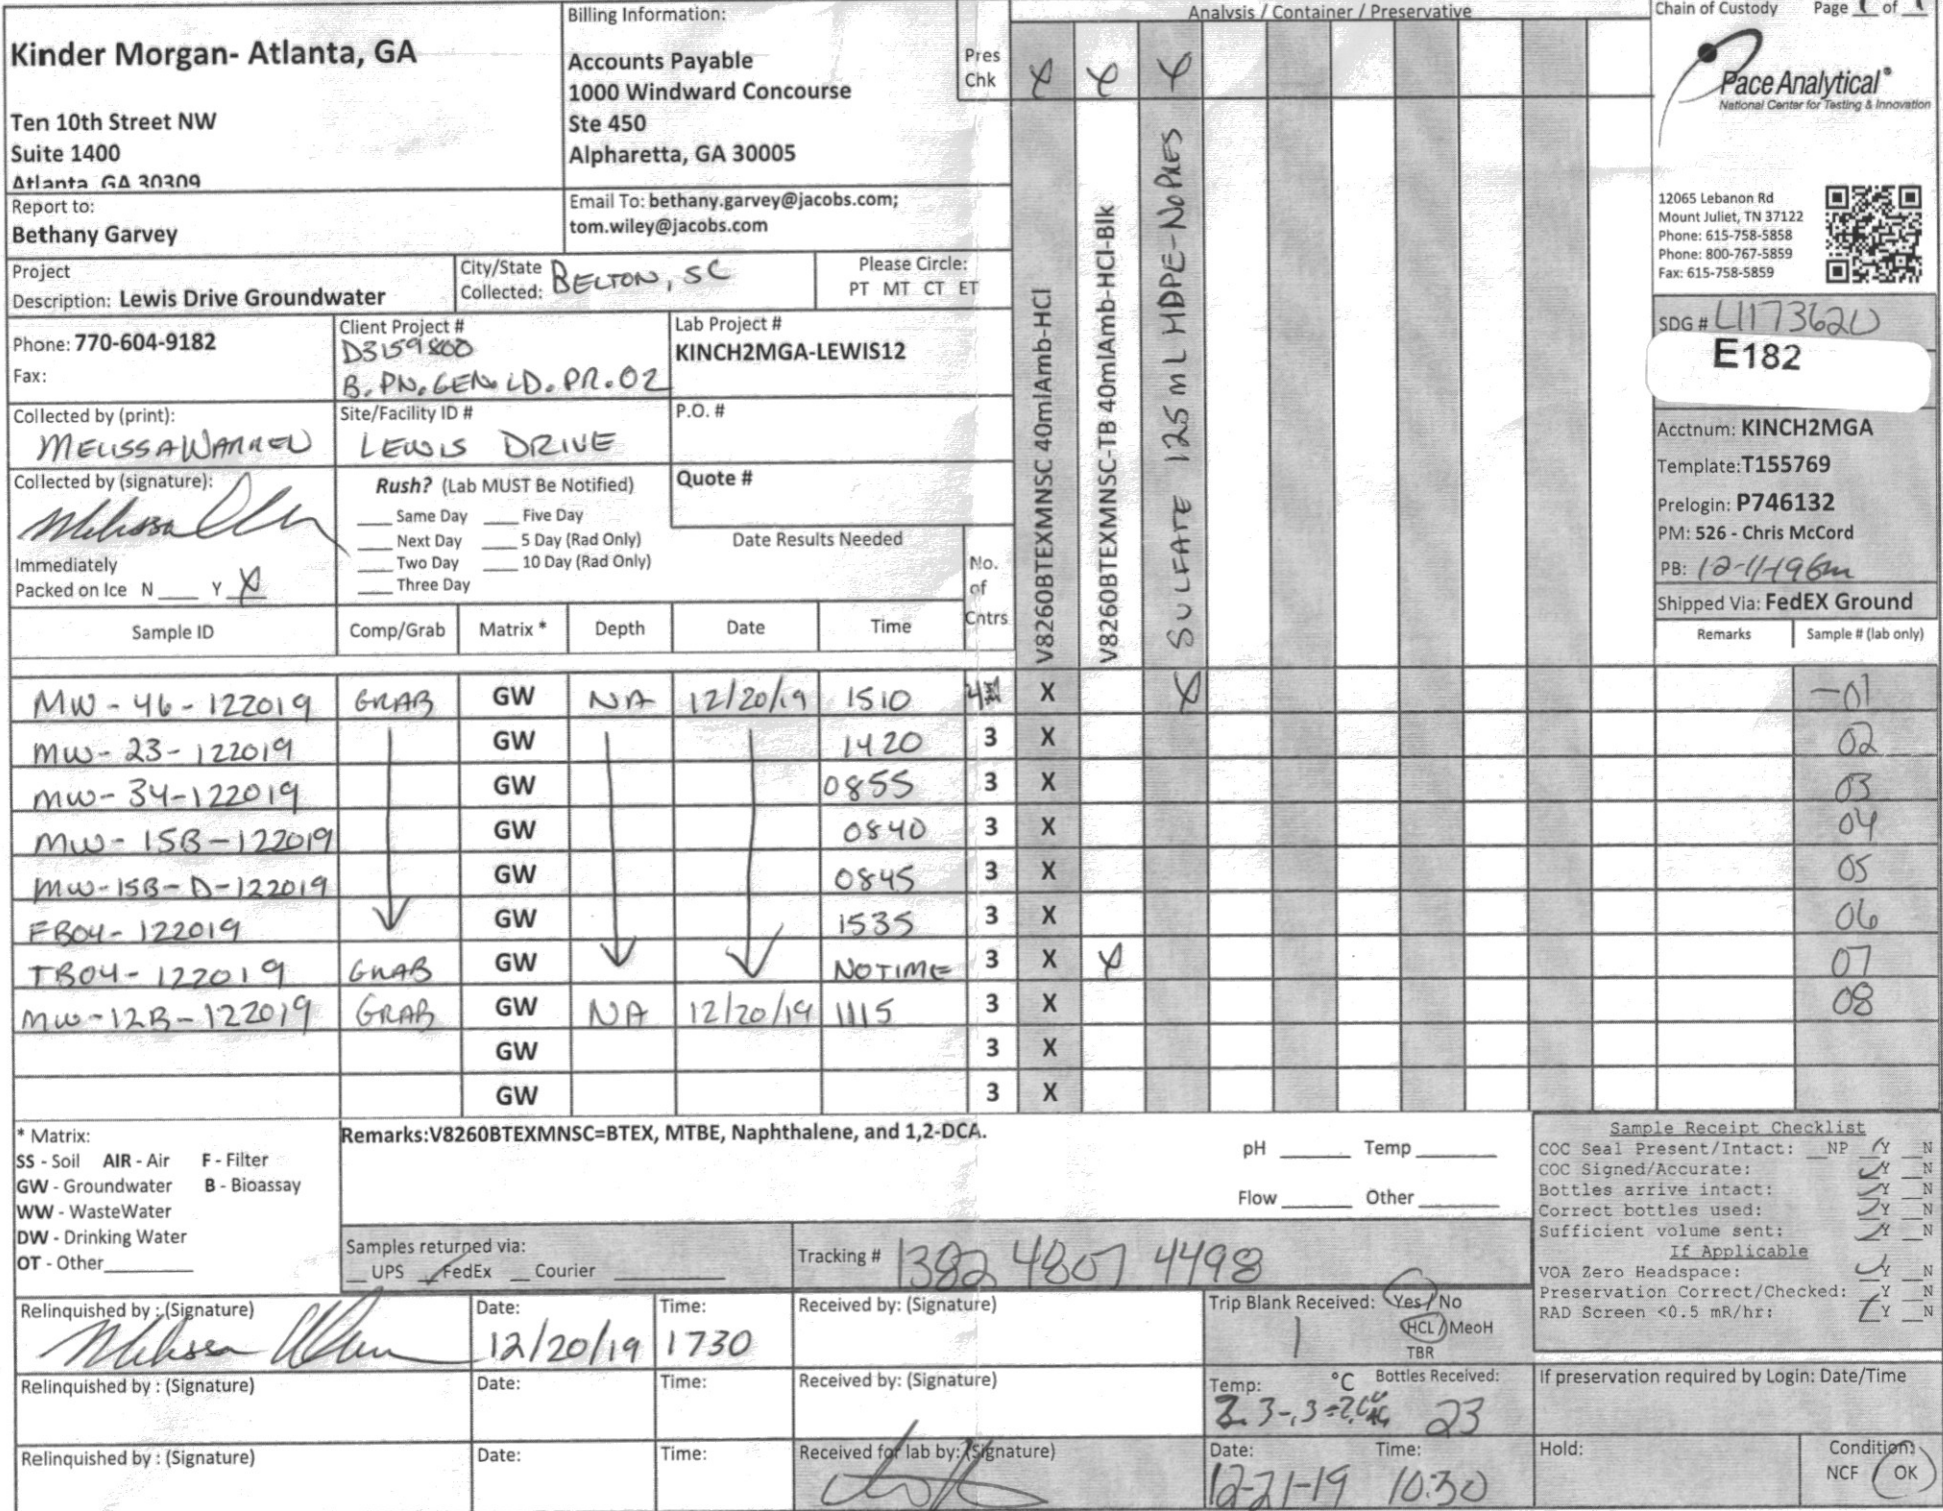 Kinder Morgan- Atlanta, GA
Ten 10th Street NW
Suite 1400
Atlanta, GA 30309
Billing Information:
Accounts Payable
1000 Windward Concourse
Ste 450
Alpharetta, GA 30005
Pres
Chk
Analysis / Container / Preservative
Chain of Custody Page 1 of 1
Pace Analytical®
National Center for Testing & Innovation
12065 Lebanon Rd
Mount Juliet, TN 37122
Phone: 615-758-5858
Phone: 800-767-5859
Fax: 615-758-5859
Report to:
Bethany Garvey
Email To: bethany.garvey@jacobs.com;
tom.wiley@jacobs.com
Project
Description: Lewis Drive Groundwater
City/State
Collected: BELTON, SC
Please Circle:
PT MT CT ET
Phone: 770-604-9182
Fax:
Client Project #
D3159800
B.PN.GEN.LD.PR.02
Lab Project #
KINCH2MGA-LEWIS12
Collected by (print):
MELISSA WARREN
Site/Facility ID #
LEWIS DRIVE
P.O. #
Collected by (signature):
Rush? (Lab MUST Be Notified)
___ Same Day ___ Five Day
___ Next Day ___ 5 Day (Rad Only)
___ Two Day ___ 10 Day (Rad Only)
___ Three Day
Quote #
Date Results Needed
Immediately
Packed on Ice N ___ Y X
No.
of
Cntrs
V8260BTEXMNSC 40mlAmb-HCl
V8260BTEXMNSC-TB 40mlAmb-HCl-Blk
SULFATE 125 mL HDPE-NoPRES
SDG # L1173620
E182
Acctnum: KINCH2MGA
Template: T155769
Prelogin: P746132
PM: 526 - Chris McCord
PB:
Shipped Via: FedEX Ground
Sample ID Comp/Grab Matrix * Depth Date Time Remarks Sample # (lab only)
MW-46-122019 GRAB GW NA 12/20/19 1510 4 X X -01
MW-23-122019 GW 1420 3 X 02
MW-34-122019 GW 0855 3 X 03
MW-15B-122019 GW 0840 3 X 04
MW-15B-D-122019 GW 0845 3 X 05
FB04-122019 GW 1535 3 X 06
TB04-122019 GRAB GW NO TIME 3 X X 07
MW-12B-122019 GRAB GW NA 12/20/19 1115 3 X 08
GW 3 X
GW 3 X
* Matrix:
SS - Soil AIR - Air F - Filter
GW - Groundwater B - Bioassay
WW - WasteWater
DW - Drinking Water
OT - Other
Remarks:V8260BTEXMNSC=BTEX, MTBE, Naphthalene, and 1,2-DCA.
pH ___ Temp ___
Flow ___ Other ___
Samples returned via:
__ UPS ✓ FedEx __ Courier
Tracking # 1382 4807 4498
Sample Receipt Checklist
COC Seal Present/Intact: __NP ✓Y __N
COC Signed/Accurate: ✓Y __N
Bottles arrive intact: ✓Y __N
Correct bottles used: ✓Y __N
Sufficient volume sent: ✓Y __N
If Applicable
VOA Zero Headspace: ✓Y __N
Preservation Correct/Checked: ✓Y __N
RAD Screen <0.5 mR/hr: ✓Y __N
Relinquished by : (Signature)
Date:
12/20/19
Time:
1730
Received by: (Signature)
Trip Blank Received: Yes / No
1
HCL / MeoH
TBR
Relinquished by : (Signature)
Date:
Time:
Received by: (Signature)
Temp: °C Bottles Received:
23
If preservation required by Login: Date/Time
Relinquished by : (Signature)
Date:
Time:
Received for lab by: (Signature)
Date:
12-21-19
Time:
10:30
Hold:
Condition:
NCF / OK